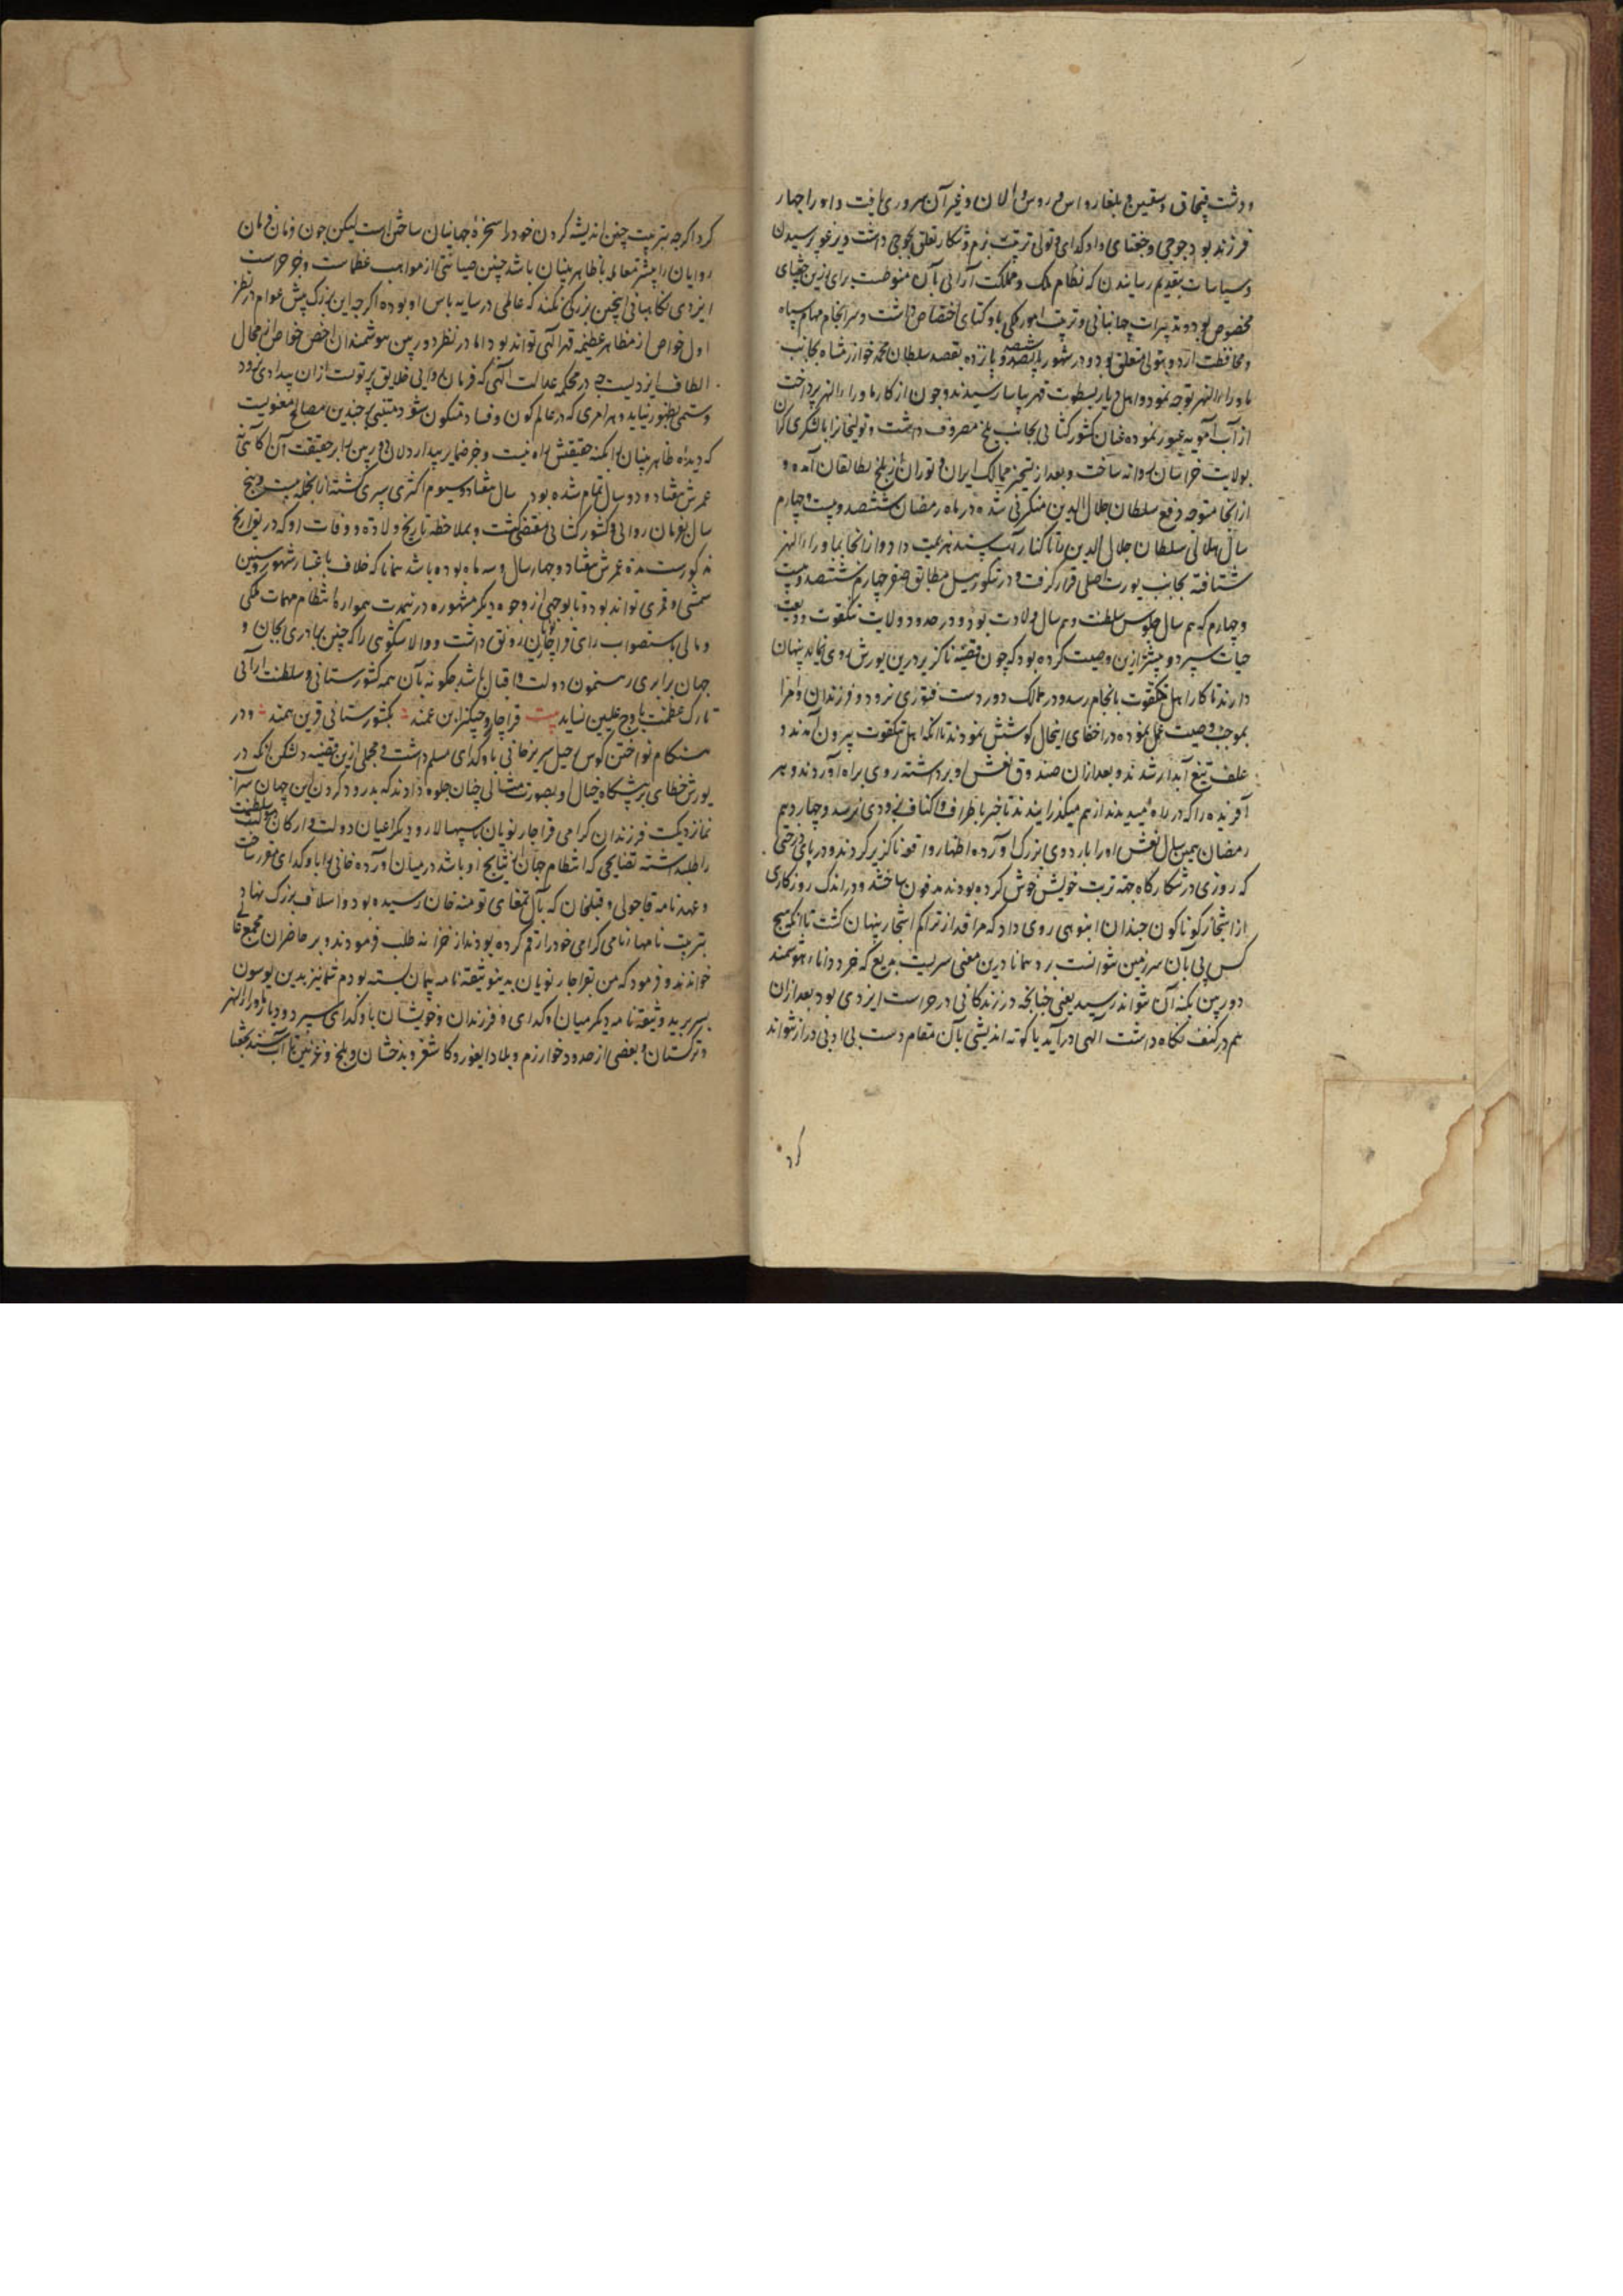 ودشت قبچاق و سقین و بلغار و اس و روس و الان و غیر آن سروری یافت و او را چهار
فرزند بود جوجی و چغتای و اوکدای و تولی ترتیب بزم و شکار تعلق بجوجی داشت و یرغو پرسیدن
و سیاسات بتقدیم رسانیدن که نظام ملک و مملکت آرائی بآن منوطست برای زرین چغتای
مخصوص بود و تدبیرات جهانبانی و ترتیب امور ملکی باوکتای اختصاص داشت و سرانجام مهام سپاه
و محافظت اردو بتولی متعلق بود و در شهور ششصد و پانزده بقصد سلطان محمد خوارزمشاه بجانب
ماوراءالنهر توجه نمود و اهل دیار بسطوت قهر بیاسا رسیدند و چون از کار ماوراءالنهر پرداخت
از آب آمویه عبور نموده عنان کشورکشائی بجانب بلخ مصروف داشت و تولیخان را با لشکری گران
بولایت خراسان روانه ساخت و بعد از تسخیر ممالک ایران و توران از بلخ بطالقان آمده و
ازانجا متوجه دفع سلطان جلال الدین منکبرنی شده در ماه رمضان ششصد و بیست و چهارم
سال هلالی سلطان جلال الدین را تا کنار آب سند هزیمت داد و ازانجا بماوراءالنهر
شتافته بجانب یورت اصلی قرار گرفت و در تنکوزئیل مطابق صفر چهارم ششصد و بیست
و چهارم که هم سال جلوس سلطنت و هم سال ولادت بود و در حدود ولایت تنکقوت ودیعت
حیات سپرد و پیشتر ازین وصیت کرده بود که چون قضیه ناگزیر درین یورش روی نماید پنهان
دارند تا کار اهل تنکقوت بانجام رسد و در ممالک دوردست فتوری نرود و فرزندان و امرا
بموجب وصیت عمل نموده در اخفای اینحال کوشش نمودند تا آنکه اهل تنکقوت بیرون آمدند و
علف تیغ آبدار شدند و بعد ازان صندوق نعش او برداشته روی براه آوردند و هر
آفریده را که در راه میدیدند از هم میگذرانیدند تا خبر باطراف و اکناف بزودی نرسد و چهاردهم
رمضان همین سال نعش او را باردوی بزرگ آورده اظهار واقعه ناگزیر کردند و در پای درختی
که روزی در شکارگاه جهة تربت خویش خوش کرده بودند مدفون ساختند و در اندک روزگاری
از اشجار گوناگون چندان انبوهی روی داد که مرقد از تراکم اشجار پنهان گشت تا آنکه هیچ
کس پی بآن سرزمین نتوانست برد همانا درین معنی سریست بدیع که خرد دانا و هوشمند
دوربین بکنه آن تواند رسید یعنی چنانچه در زندگانی در حراست ایزدی بود بعد ازان
هم در کنف نگاه داشت الهی درآید تا کوته اندیشی بآن مقام دست بی ادبی دراز نتواند
کرد
کرد اگرچه بتربیت چنین اندیشه کردن خود را سخرهٔ جهانیان ساختن است لیکن چون زمان فرمان
روایان را بیشتر معامله با ظاهربینان باشد چنین صیانتی از مواهب عظماست و چرا حراست
ایزدی نگاهبانی اینچنین بزرگی نکند که عالمی در سایه پاس او بوده اگرچه این بزرگ پیش عوام در نظر
اول خواص از مظاهر عظیمه قهر الهی تواند بود اما در نظر دوربین هوشمندان اخص خواص از مجال
الطاف ایزدیست چه در محکمه عدالت الهی که فرمان روایی خلایق پرتویست ازان بیدادی نرود
و ستمی بظهور نیاید و هر امری که در عالم کون و فساد متکون شود مبتنی بر چندین مصالح معنویت
که دیدهٔ ظاهربینان را بکنه حقیقتش راه نیست و جز ضمایر بیداردلان دوربین را بر حقیقت آن آگاهی نه
عمرش هفتاد و دو سال تمام شده بود و سال هفتاد و سیوم اکثری سپری گشته ازانجمله بیست و پنج
سال بفرمان روائی و کشورکشائی منقضی گشت و بملاحظه تاریخ ولادت و وفات او که در تواریخ
مذکورست مدة عمرش هفتاد و چهار سال و سه ماه بوده باشد همانا که خلاف باعتبار شهور و سنین
شمسی و قمری تواند بود و یا بوجهی از وجوه دیگر مشهوره در نمدت همواره انتظام مهمات ملکی
و مالی باستصواب رای قراچار نویان رونق داشت و والاشکوهی را که چنین برادری بجان و
جهان برابری رهنمون دولت و اقبال باشد چگونه بآن همه کشورستانی و سلطنت آرائی
تارک عظمت باوج علیین نساید بیت قراچار و چنگیز ابن عمند بکشورستانی قرین همند و در
هنگام نواختن کوس رحیل سریر خانی باوکدای مسلم داشت و مجملی ازین قضیه دلشکن آنکه در
یورش خطای بر پیشگاه خیال او بصورت مثالی چنان جلوه دادند که بدرود کردن این جهان سرا
نما نزدیکست فرزندان گرامی و قراچار نویان سپهسالار و دیگر اعیان دولت و ارکان سلطنت
را طلبداشته نصایحی که انتظام جهان از نتایج او باشد درمیان آورده خانی را باوکدای مقرر ساخت
و عهدنامه قاچولی و قبلخان که بآل تمغای تومنه خان رسیده بود و اسلاف بزرگ نهاد
بترتیب نامها نامی گرامی خود را رقم کرده بودند از خزانه طلب فرمودند و بر حاضران مجمع عالی
خواندند و فرمود که من بقراچار نویان بدین وثیقه نامه پیمان بسته بودم شما نیز بدین یوسون
بسر برید و وثیقه نامه دیگر میان اوکدای و فرزندان و خویشان باوکدای سپرد و دیار ماوراءالنهر
و ترکستان و بعضی از حدود خوارزم و بلاد ایغور و کاشغر و بدخشان و بلخ و غزنین تا آب سند بچغتا